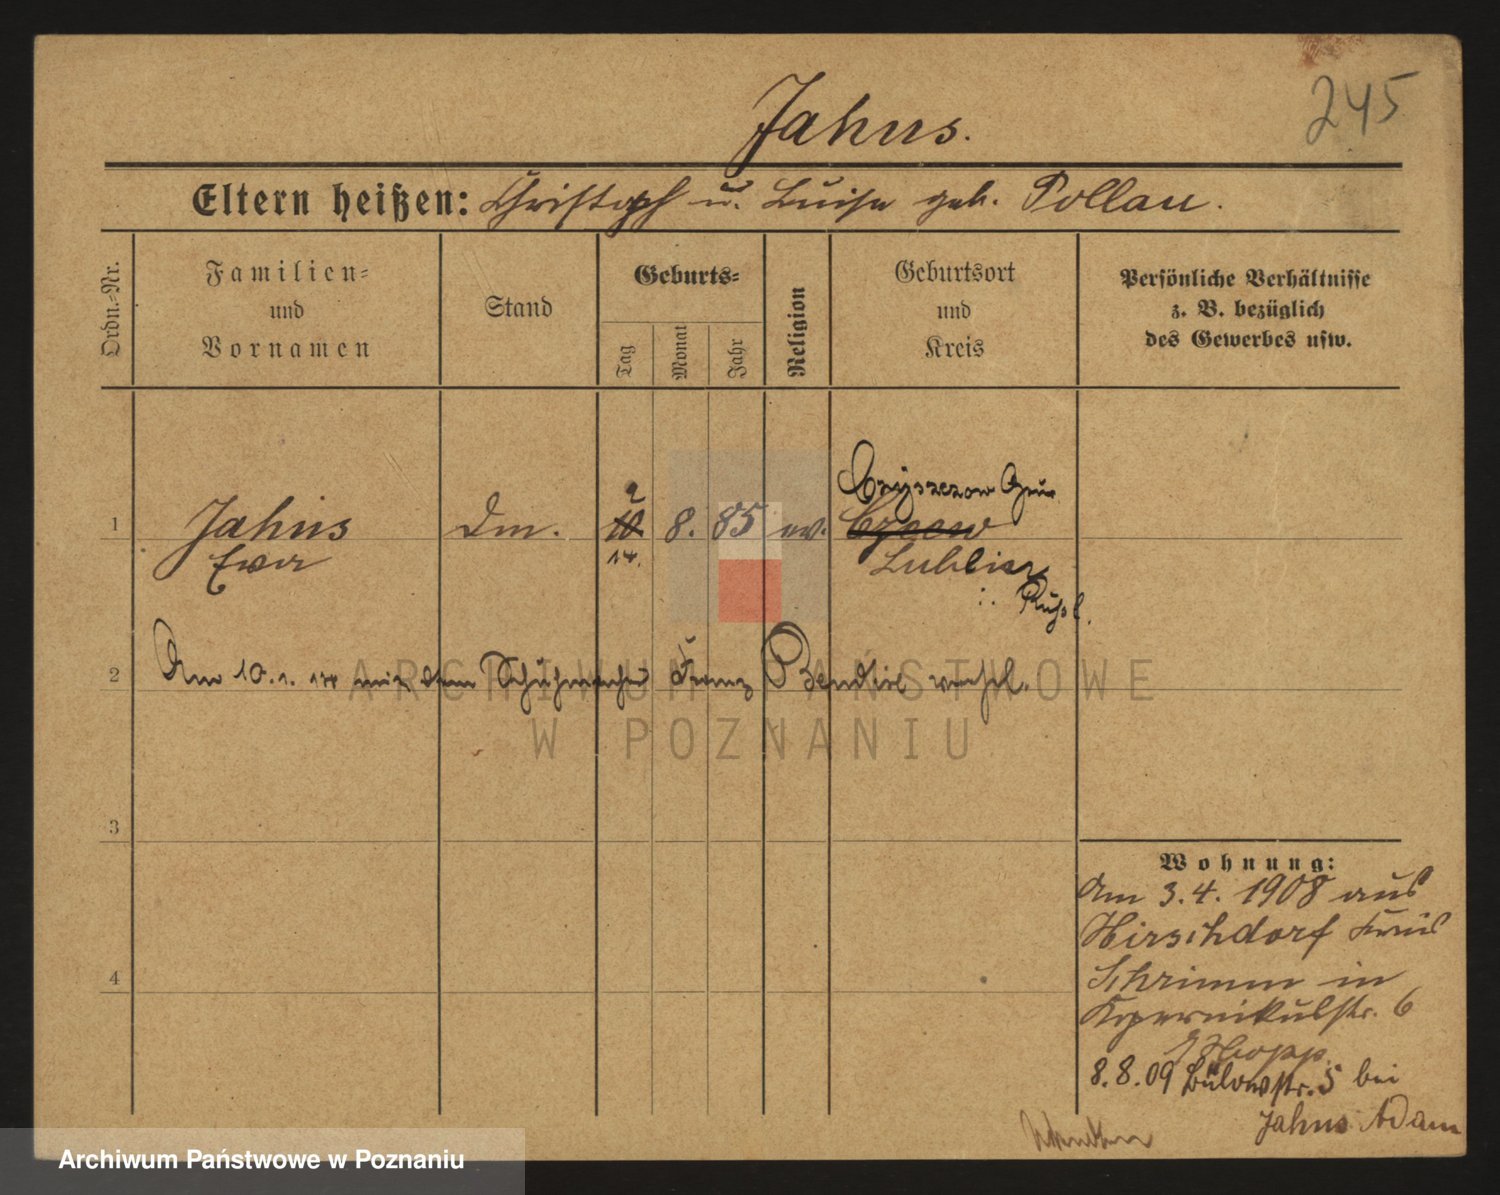 245
Jahns.
Eltern heißen: Christoph u. Luise geb. Pollau.
Ordn.-Nr.
Familien-
und
Vornamen
Stand
Geburts-
Tag
Monat
Jahr
Religion
Geburtsort
und
Kreis
Persönliche Verhältnisse
z. B. bezüglich
des Gewerbes usw.
1
Jahns
Ewa
Dm.
2
10
14.
8.
85
ev.
Lublin
Rußl.
2
Am 10. 1. 14 mit dem Schuhmacher Franz
3
4
Wohnung:
Am 3.4. 1908 aus
Hirschdorf Kreis
Schrimm in
Kopernikusstr. 6
8.8.09 Bülowstr. 5 bei
Jahns Adam
ARCHIWUM PAŃSTWOWE
W POZNANIU
Archiwum Państwowe w Poznaniu